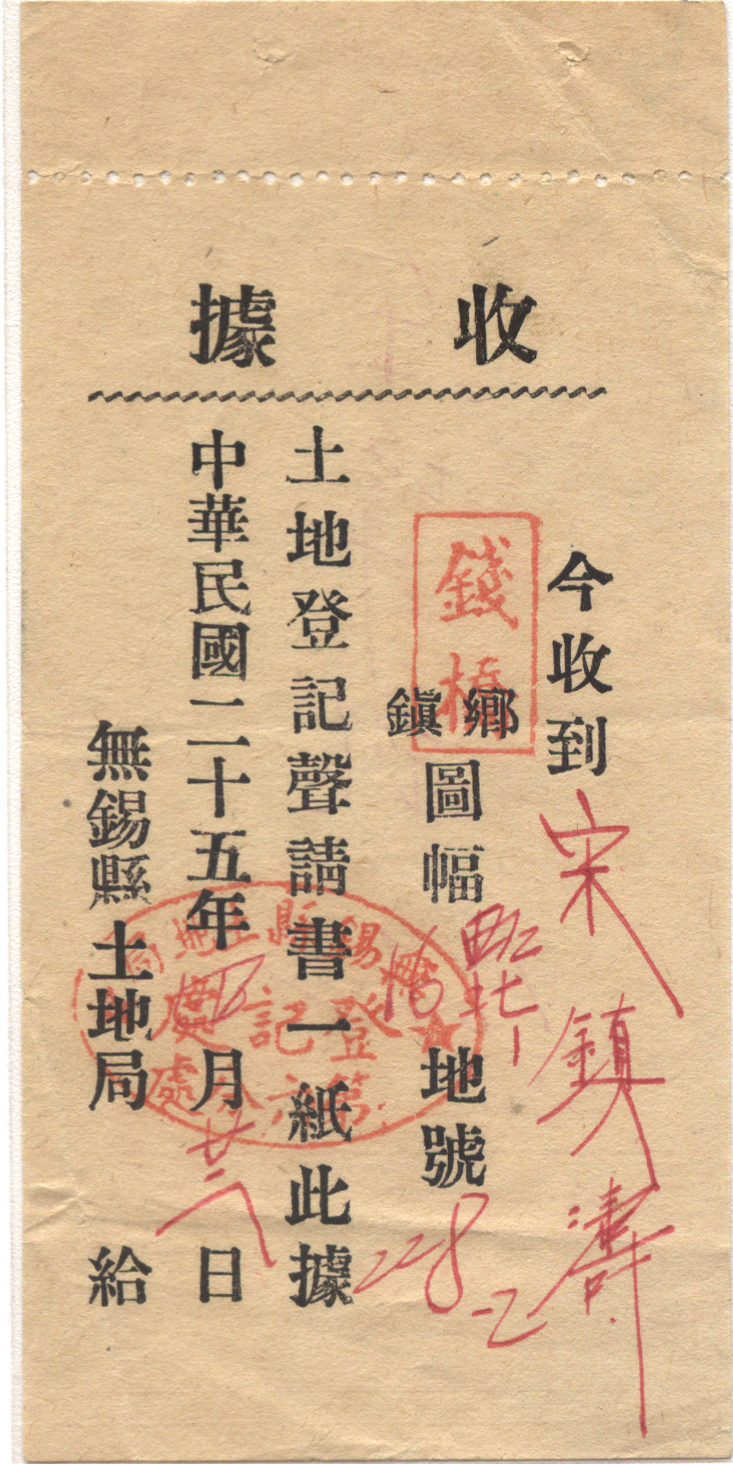 收據
今收到宋鎮濤
錢橋
鄉鎮圖幅 地號228
土地登記聲請書一紙此據
中華民國二十五年四月廿六日
無錫縣土地局給
無錫縣土地局
登記處
第六分處